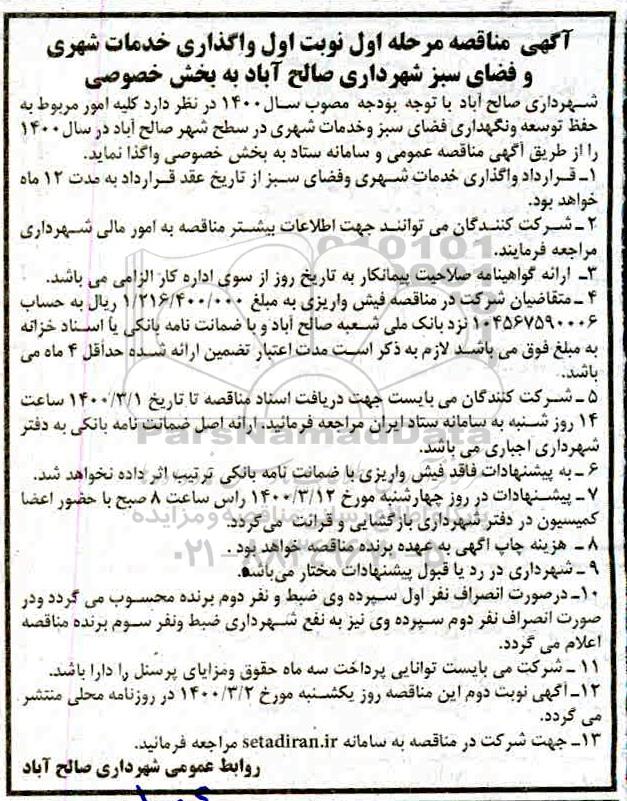 آگهی مناقصه مرحله اول نوبت اول واگذاری خدمات شهری
و فضای سبز شهرداری صالح آباد به بخش خصوصی
شهرداری صالح آباد با توجه بودجه مصوب سال ۱۴۰۰ در نظر دارد کلیه امور مربوط به
حفظ توسعه ونگهداری فضای سبز وخدمات شهری در سطح شهر صالح آباد در سال ۱۴۰۰
را از طریق آگهی مناقصه عمومی و سامانه ستاد به بخش خصوصی واگذا نماید.
۱ـ قرارداد واگذاری خدمات شهری وفضای سبز از تاریخ عقد قرارداد به مدت ۱۲ ماه
خواهد بود.
۲ـ شرکت کنندگان می توانند جهت اطلاعات بیشتر مناقصه به امور مالی شهرداری
مراجعه فرمایند.
۳ـ ارائه گواهینامه صلاحیت پیمانکار به تاریخ روز از سوی اداره کار الزامی می باشد.
۴ـ متقاضیان شرکت در مناقصه فیش واریزی به مبلغ ۱/۲۱۶/۴۰۰/۰۰۰ ریال به حساب
۱۰۴۵۶۷۵۹۰۰۰۶ نزد بانک ملی شعبه صالح آباد و با ضمانت نامه بانکی یا اسناد خزانه
به مبلغ فوق می باشد لازم به ذکر است مدت اعتبار تضمین ارائه شده حداقل ۴ ماه می
باشد.
۵ـ شرکت کنندگان می بایست جهت دریافت اسناد مناقصه تا تاریخ ۱۴۰۰/۳/۱ ساعت
۱۴ روز شنبه به سامانه ستاد ایران مراجعه فرمائید. ارائه اصل ضمانت نامه بانکی به دفتر
شهرداری اجباری می باشد.
۶ـ به پیشنهادات فاقد فیش واریزی با ضمانت نامه بانکی ترتیب اثر داده نخواهد شد.
۷ـ پیشنهادات در روز چهارشنبه مورخ ۱۴۰۰/۳/۱۲ راس ساعت ۸ صبح با حضور اعضا
کمیسیون در دفتر شهرداری بازگشایی و قرائت می گردد.
۸ـ هزینه چاپ آگهی به عهده برنده مناقصه خواهد بود.
۹ـ شهرداری در رد یا قبول پیشنهادات مختار می باشد.
۱۰ـ درصورت انصراف نفر اول سپرده وی ضبط و نفر دوم برنده محسوب می گردد ودر
صورت انصراف نفر دوم سپرده وی نیز به نفع شهرداری ضبط ونفر سوم برنده مناقصه
اعلام می گردد.
۱۱ـ شرکت می بایست توانایی پرداخت سه ماه حقوق ومزایای پرسنل را دارا باشد.
۱۲ـ آگهی نوبت دوم این مناقصه روز یکشنبه مورخ ۱۴۰۰/۳/۲ در روزنامه محلی منتشر
می گردد.
۱۳ـ جهت شرکت در مناقصه به سامانه setadiran.ir مراجعه فرمائید.
روابط عمومی شهرداری صالح آباد
ParsNamadData